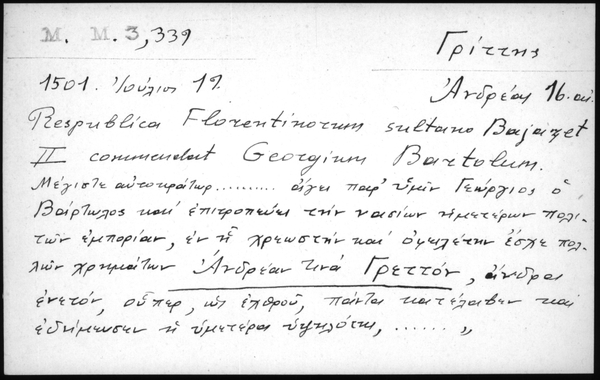 M. M. 3,339
Γρίττης
1501. Ἰούλιος 17.
Ἀνδρέας 16. αἰ.
Respublica Florentinorum sultano Bajazet
II commendat Georgium Bartolum.
Μέγιστε αὐτοκράτωρ.......... παρ' ὑμῖν Γεώργιος ὁ
Βάρτωλος καὶ ἐπιτροπεύει τὴν τῶν ἡμετέρων πολι-
τῶν ἐμπορίαν, ἐν ᾗ χρεώστην καὶ ὀφειλέτην ἔσχε πολ-
λῶν χρημάτων Ἀνδρέαν τινὰ Γρεττόν, ἄνδρα
ἐνετόν, οὗπερ, ὡς ἐχθροῦ, πάντα κατέλαβεν καὶ
ἐδήμευσεν ἡ ὑμετέρα ὑψηλότης, ...... „